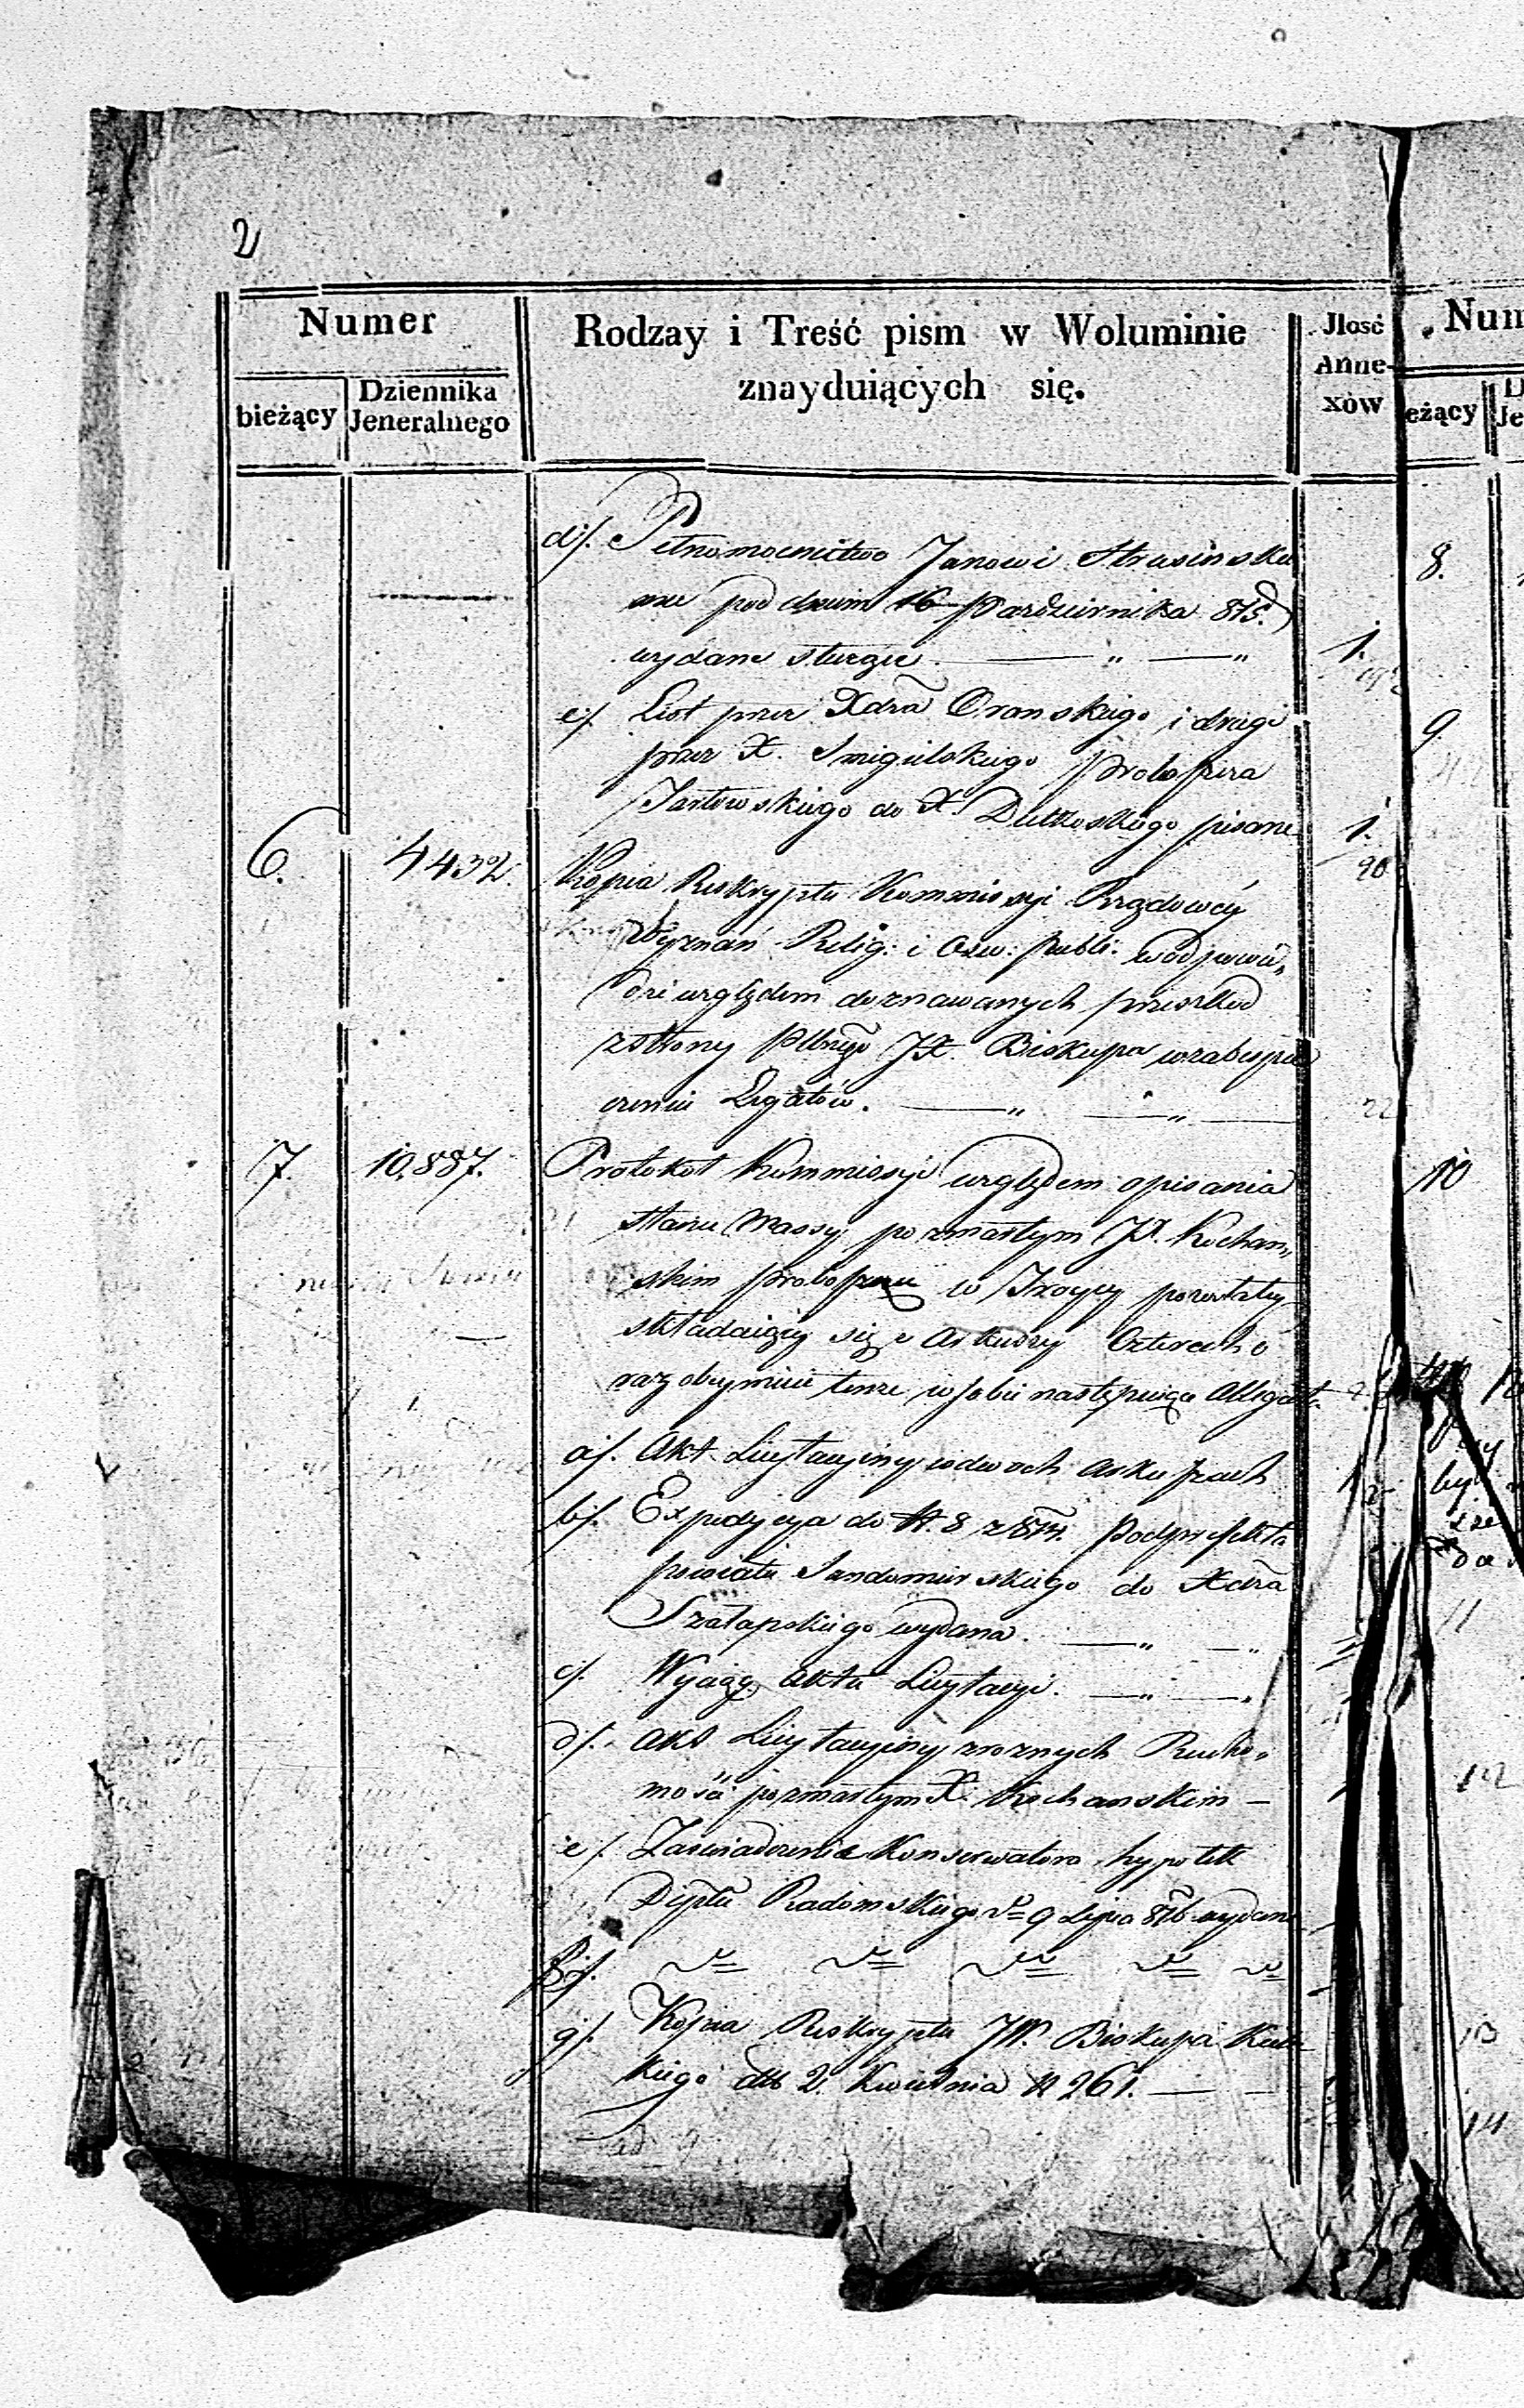 2
Numer
Rodzay i Treść pism w Woluminie
znayduiących się.
Jlość
Anne-
xów
bieżący
Dziennika
Jeneralnego
Num
eżący
d/. Pełnomocnictwo Janowi Strusinskie
mu pod dniem 16 Pazdziernika 815.
wydane służące. — " — "
1.
e/. List przez Xdza Oranskiego i drugi
przez X. Smigielskiego Proboszcza
Jarłowskiego do X. Dutkoskiego pisane
1.
6. 4432. Kopia Reskryptu Kommissyi Rządowéy
Wyznań Relig: i Ośw: Publi: w odpowie„
dzi względem doznawanych przeszkod
z strony JX. Biskupa w zabespie
czeniu Legatów. — " — " —
7. 10,887. Protokoł Kommissyi względem opisania
stanu Massy po zmarłym JX. Kochan„
skim Proboszczu w pozostałey
składaiący się z Arkuszy Czterech ó
raz obeymuie tenże w sobie następuiące Allegat.
a/. Akt Licytacyiny w dwoch Arkuszach
b/. Expedycya do N. 8 z 814. Podprefekta
Powiatu Sandomirskiego do Xdza
Szałapskiego wydana. — " — "
c/. Wyciąg Aktu Licytacyi. — " — "
d/. Akt Licytacyiny z roznych Rucho„
mości po zmarłym X. Kochanskim —
e/. Zaswiadczenie Konserwatora hypotek
Deptu Radomskiego d= 9 Lipca 816 wydane
f/. d= d= d= d= d=
g/. Kopia Reskryptu JW. Biskupa
kiego dtto 2. Kwietnia N 261. — —
8.
9.
10
11
12
13
14